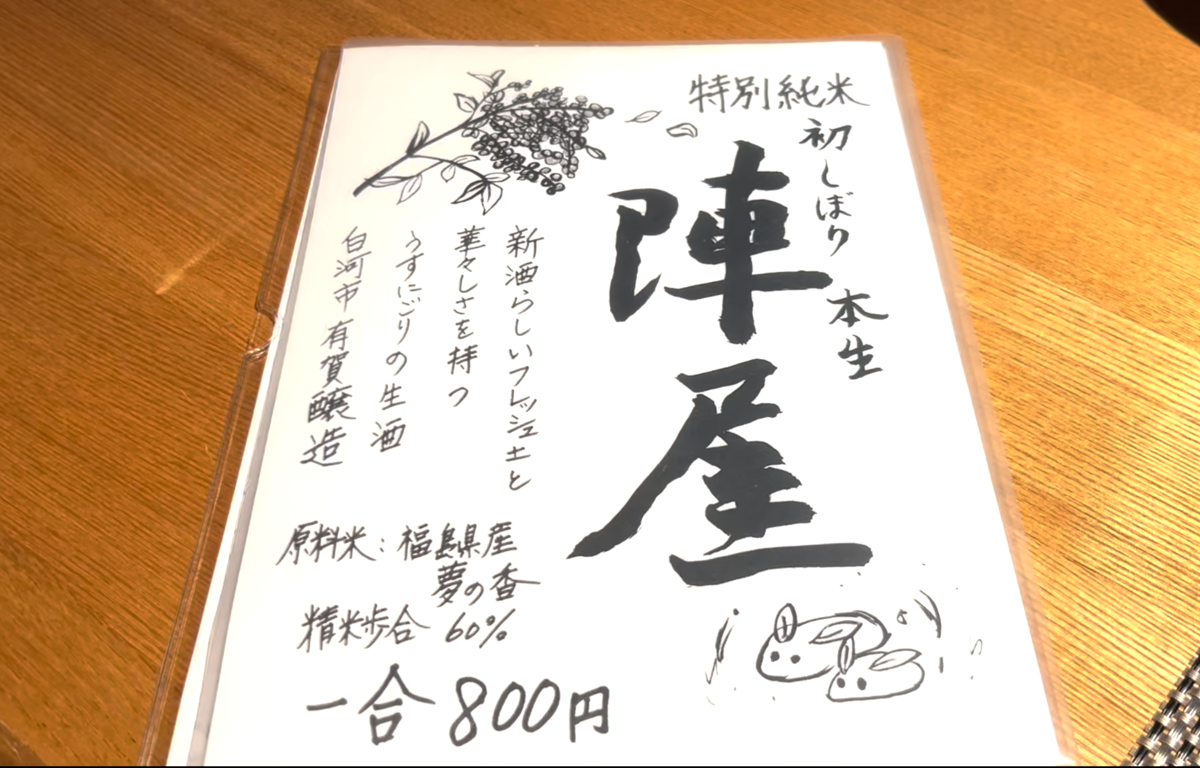 特別純米
初しぼり 本生
陣屋
新酒らしいフレッシュ土と
華々しさを持つ
うすにごりの生酒
白河市有賀醸造
原料米：福島県産
夢の香
精米歩合 60%
一合 800円